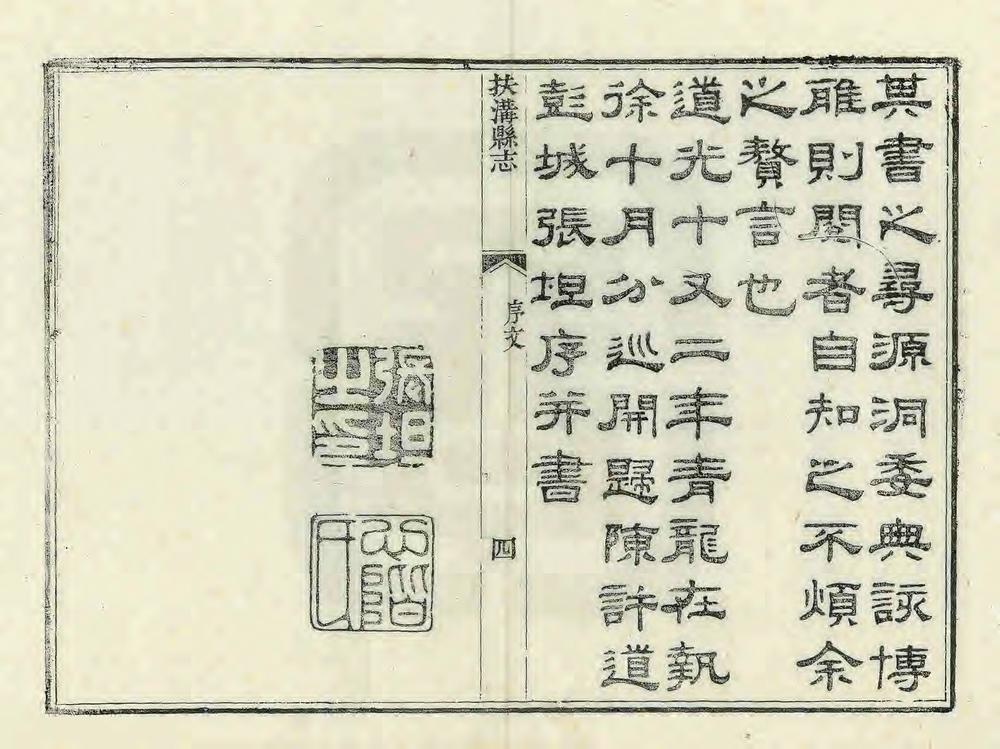 其書之尋源洞委典詠博
雅則閱者自知之不煩余
之贅言也
道光十又二年青龍在執
徐十月分巡開歸陳許道
彭城張坦序并書
扶溝縣志
序文
四
張坦之印
心階氏